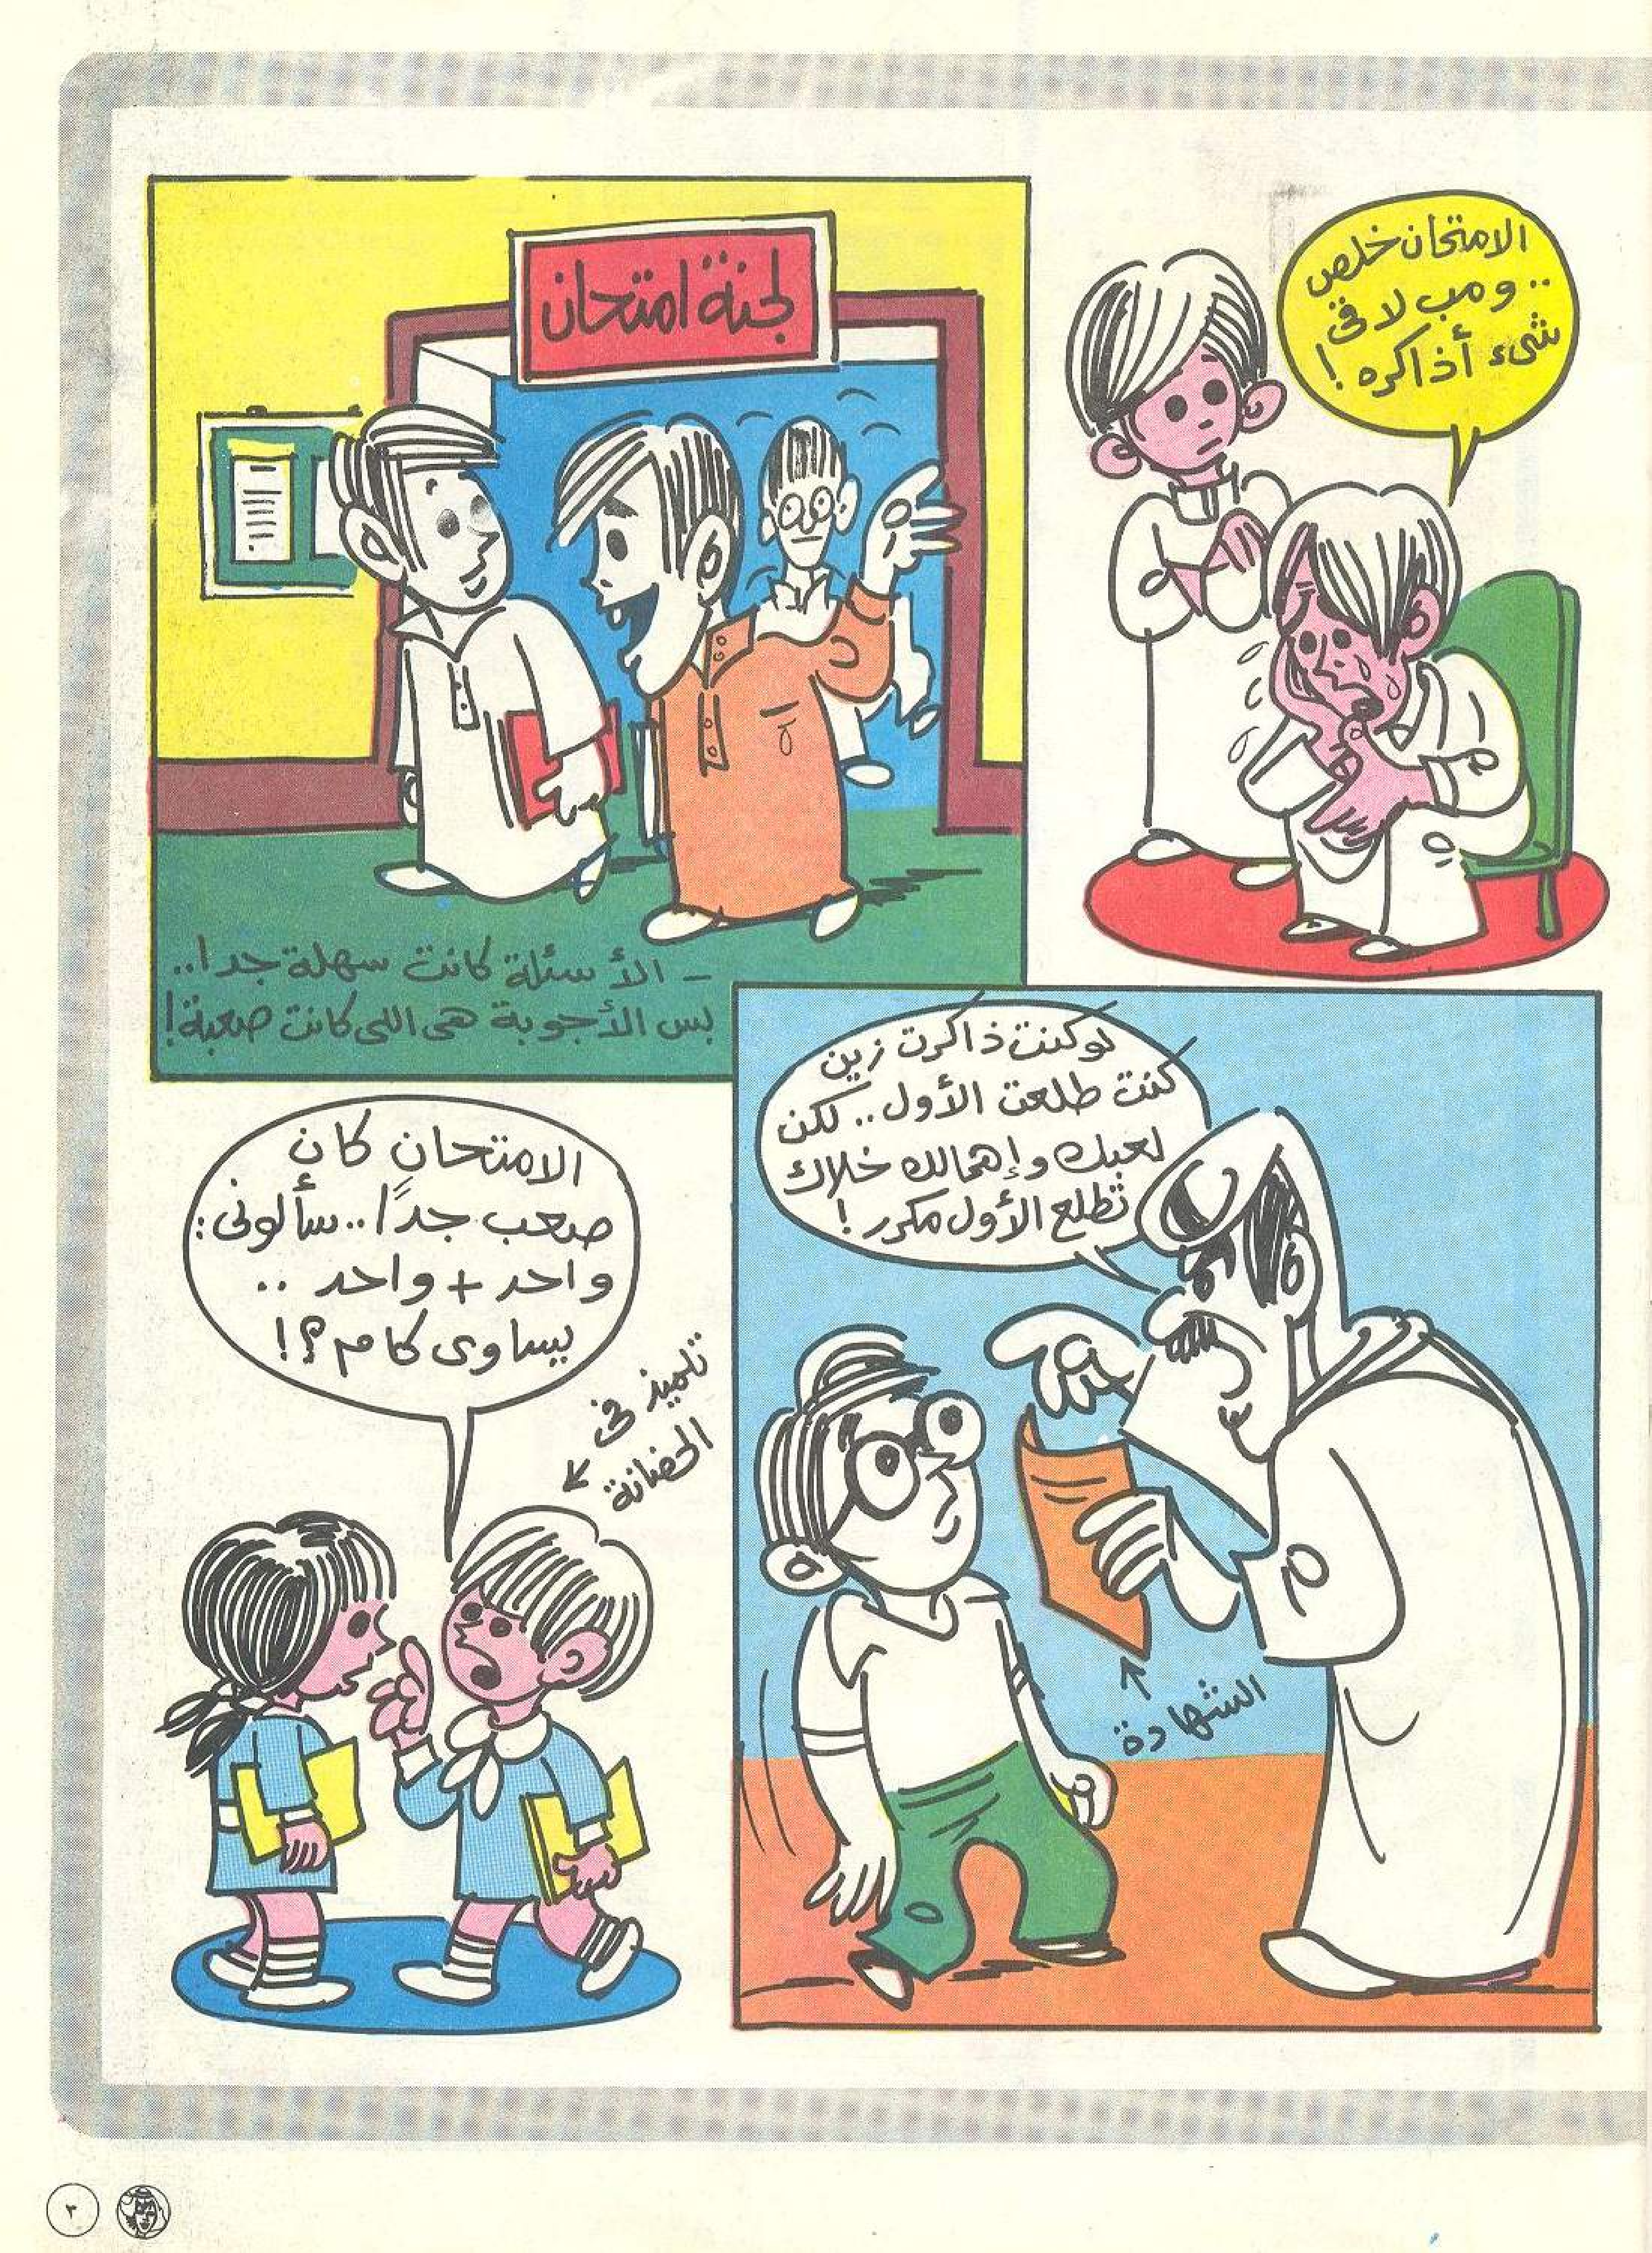 الامتحان خلص
.. ومب لاقى
شىء أذاكره!
لجنة امتحان
- الأسئلة كانت سهلة جدا..
بس الأجوبة هى اللى كانت صعبة!
لو كنت ذاكرت زين
كنت طلعت الأول.. لكن
لعبك وإهمالك خلاك
تطلع الأول مكرر!
الشهادة
الامتحان كان
صعب جدًا.. سألونى:
واحد + واحد ..
يساوى كام؟!
تلميذ فى
الحضانة
٣